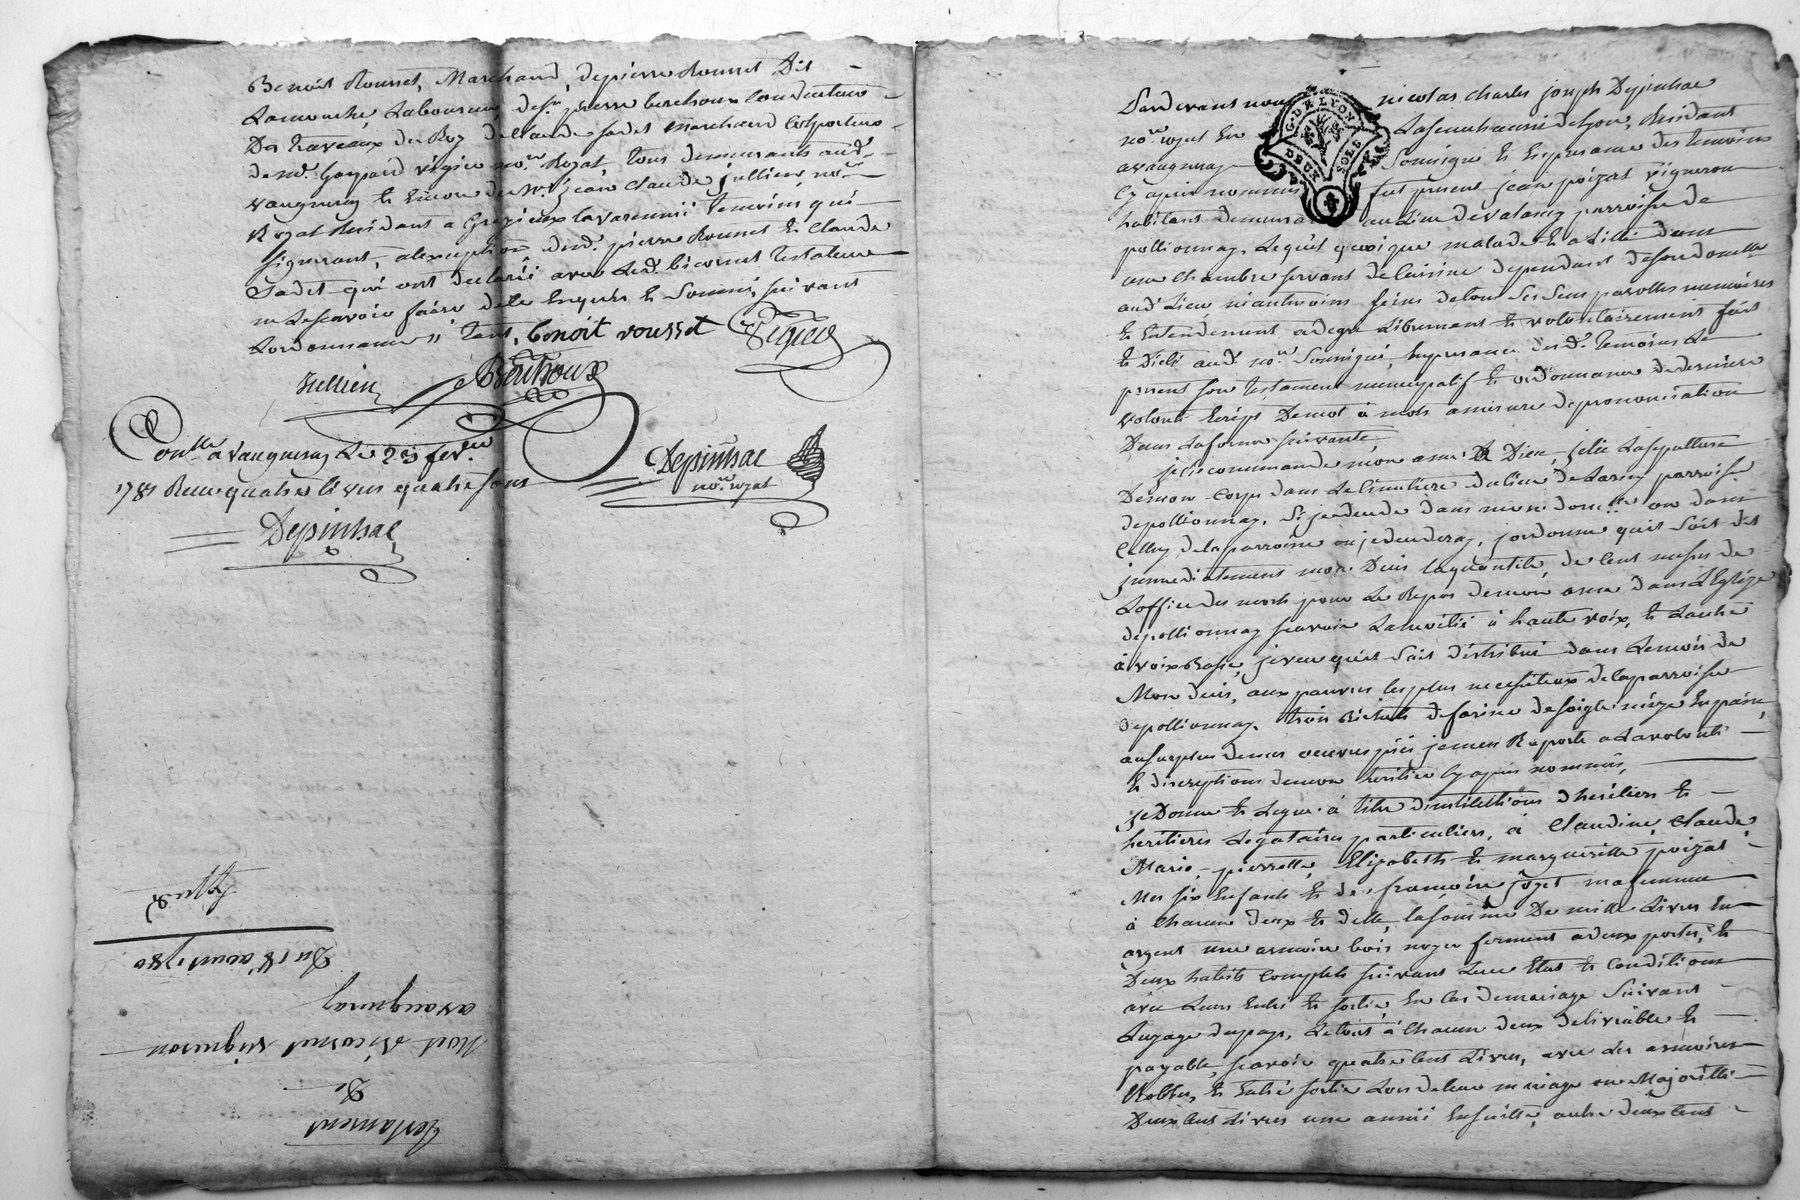 Benoit Rousset, Marchand, de pierre Rousset Dit
Lamouche, Laboureur, de sr. pierre berthoux Conducteur
Des travaux du Roy de Claude sadet marchand
de mr. Gaspard no.re Royal, tous demeurants aud.
vaugneray Et Encor de Mr. jean Claude jullien, no.re
Royal Residant a Grezieux lavarenne temoins qui
signeront, a lexception dud. pierre Rousset Et Claude
Sadet qui ont declaré avec Led. bicornet testateur
ne Le scavoir faire de ce Enquis Et Sommé, suivant
Lordonnance //. benoit rousset
Jullien Berthoux
Con.lle a vaugneray Le 23 fev.er
1781 Recu quatre Livres quatre sous
Depinhac
Depinhac
no.re royal
Testament
De
vigneron
a vaugneray
Du 18 aout 1780
Pardevant nous nicolas charles joseph Depinhac
no.re royal En La senechaussée de Lyon, Residant
a vaugneray Soussigné Et En presence des temoins
Cy apres nommés fut present jean poizat vigneron
habitant demeurant au Lieu de Larsy parroisse de
pollionnay, Lequel quoique malade Et a Litté dans
une Chambre servant de Cuisine dependant de son domicille
aud. Lieu, neantmoins sain de tous Ses Sens parolles memoires
Et Entendement a de gré Librement Et volontairement fait
Et Dicté aud. no.re Soussigné, En presence desd. temoins Le
present son testament nuncupatif Et ordonnance de derniere
volonté Ecrit Demot à mots a mesure de prononciation
Dans La forme suivante
je recommande mon ame à Dieu, jelis La sepulture
De mon Corps dans Le Cimetiere du lieu de Larsy parroisse
de pollionnay, Si je decede dans mon dom.lle ou dans
Celluy de la parroisse ou je decederay, jordonne quil Soit dit
immediatement mon Deces la quantité de Cent messes de
Loffice des morts pour Le Repos de mon ame dans LEglise
de pollionnay scavoir La moitié à haute voix, Et Lautre
à voix Basse, je veu quil Soit distribué dans Le mois de
Mon deces, aux pauvres les plus necessiteux de la parroisse
de pollionnay, trois Bichets de farine de soigle
au surplus de mes oeuvres pies je men Raporte a La volonté
Et discretions de mon heritier Cy apres nommé,
je Donne Et Legue à titre dinstitutions dheritiers Et
heritieres Legataires particuliers, à Claudine, Claude,
Marie, pierrette, Elizabeth Et marguerite poizat
Mes six Enfants Et de françoise jozet ma femme
à Chacun deux Et delles, la somme De mille Livres En
argent une armoire bois noyer fermant a deux portes, Et
Deux habits Complets suivant Leur Etat Et Conditions
avec Leurs Entré Et sortie En Cas de mariage Suivant
Lusage du pays, Le tout à Chacun deux delivrable Et
payable, scavoir quatre Cent Livres, avec Les armoires
Robbes, Et Entré sortie Lors de leur mariage ou Majorité
Deux Cent Livres une année Ensuitte, autre deux Cent
G. DE LYON
DEUX SOLS